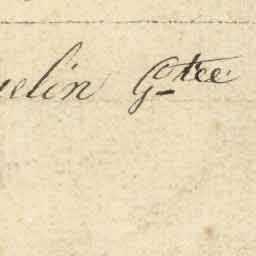 uelin Gotee